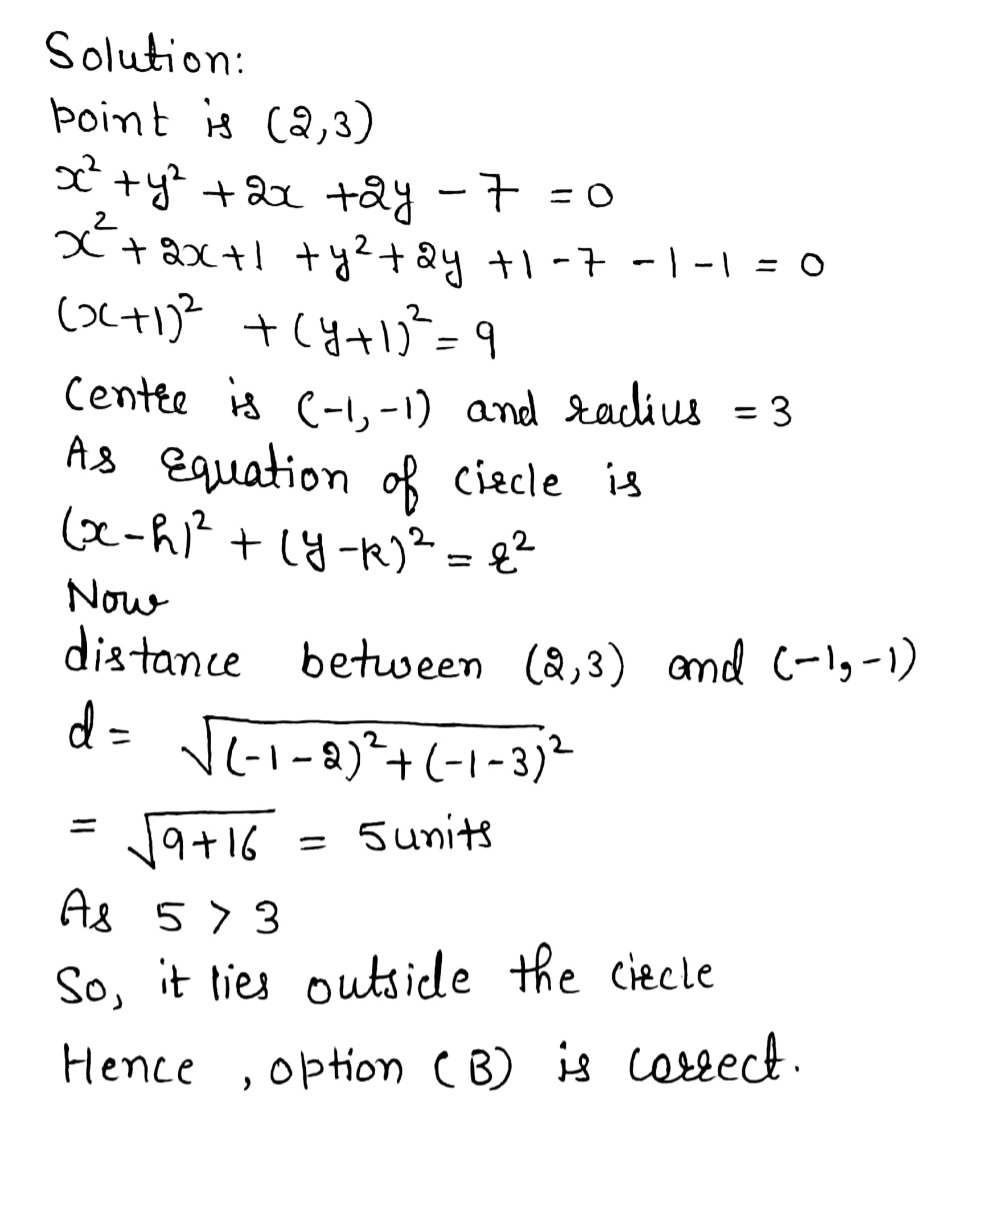 Solution:
point is (2,3)
x² + y² + 2x + 2y - 7 = 0
x² + 2x + 1 + y² + 2y + 1 - 7 - 1 - 1 = 0
(x+1)² + (y+1)² = 9
Centre is (-1,-1) and radius = 3
As Equation of circle is
(x-h)² + (y-k)² = r²
Now
distance between (2,3) and (-1,-1)
d = √(-1-2)² + (-1-3)²
= √9+16 = 5 units
As 5 > 3
So, it lies outside the circle
Hence, option (B) is correct.